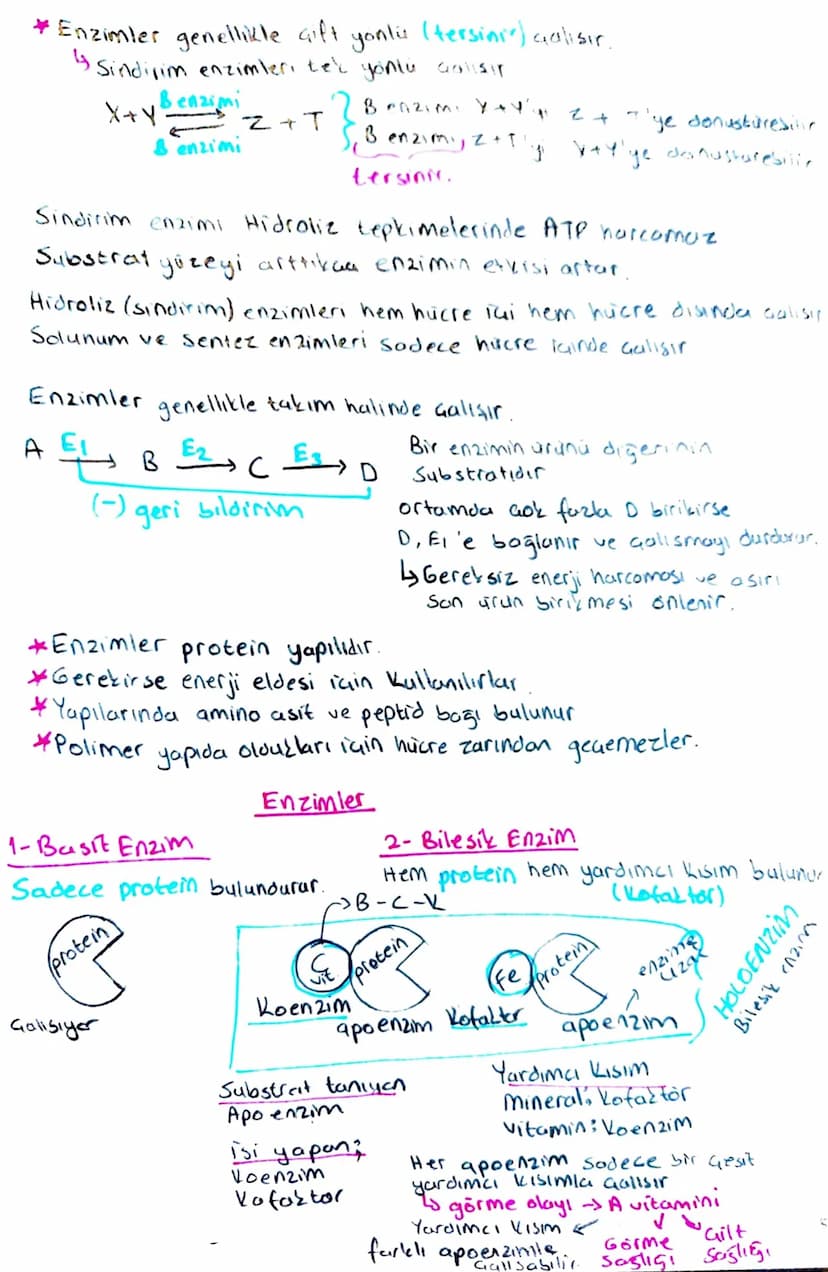 * Enzimler genellikle çift yönlü (tersinir) çalışır.
↳ Sindirim enzimleri tek yönlü çalışır
X+Y B enzimi ⇌ B enzimi Z + T
B enzimi, X+Y'yi Z + T'ye dönüştürebilir
B enzimi, Z+T'yi X+Y'ye dönüştürebilir
tersinir.
Sindirim enzimi Hidroliz tepkimelerinde ATP harcamaz
Substrat yüzeyi arttıkça enzimin etkisi artar.
Hidroliz (sindirim) enzimleri hem hücre içi hem hücre dışında çalışır
Solunum ve sentez enzimleri sadece hücre içinde çalışır
Enzimler genellikle takım halinde çalışır.
A E1 → B E2 → C E3 → D
(-) geri bildirim
Bir enzimin ürünü diğerinin
Substratıdır
ortamda çok fazla D birikirse
D, E1'e bağlanır ve çalışmayı durdurur.
↳ Gereksiz enerji harcaması ve aşırı
son ürün birikmesi önlenir.
* Enzimler protein yapılıdır.
* Gerekirse enerji eldesi için kullanılırlar
* Yapılarında amino asit ve peptid bağı bulunur
* Polimer yapıda oldukları için hücre zarından geçemezler.
Enzimler
1- Basit Enzim
Sadece protein bulundurur.
protein
Çalışıyor
2- Bileşik Enzim
Hem protein hem yardımcı kısım bulunur
(kofaktör)
→ B - C - K
C vit
protein
Koenzim
apoenzim
Fe
protein
Kofaktör
apoenzim
enzime
HOLOENZİM
Bileşik enzim
Substrat tanıyan
Apo enzim
İşi yapan;
Koenzim
Kofaktör
Yardımcı Kısım
Mineral: Kofaktör
Vitamin: Koenzim
Her apoenzim sadece bir çeşit
yardımcı kısımla çalışır
↳ görme olayı → A vitamini
Görme
sağlığı
Cilt
sağlığı
Yardımcı kısım
farklı apoenzimle
çalışabilir